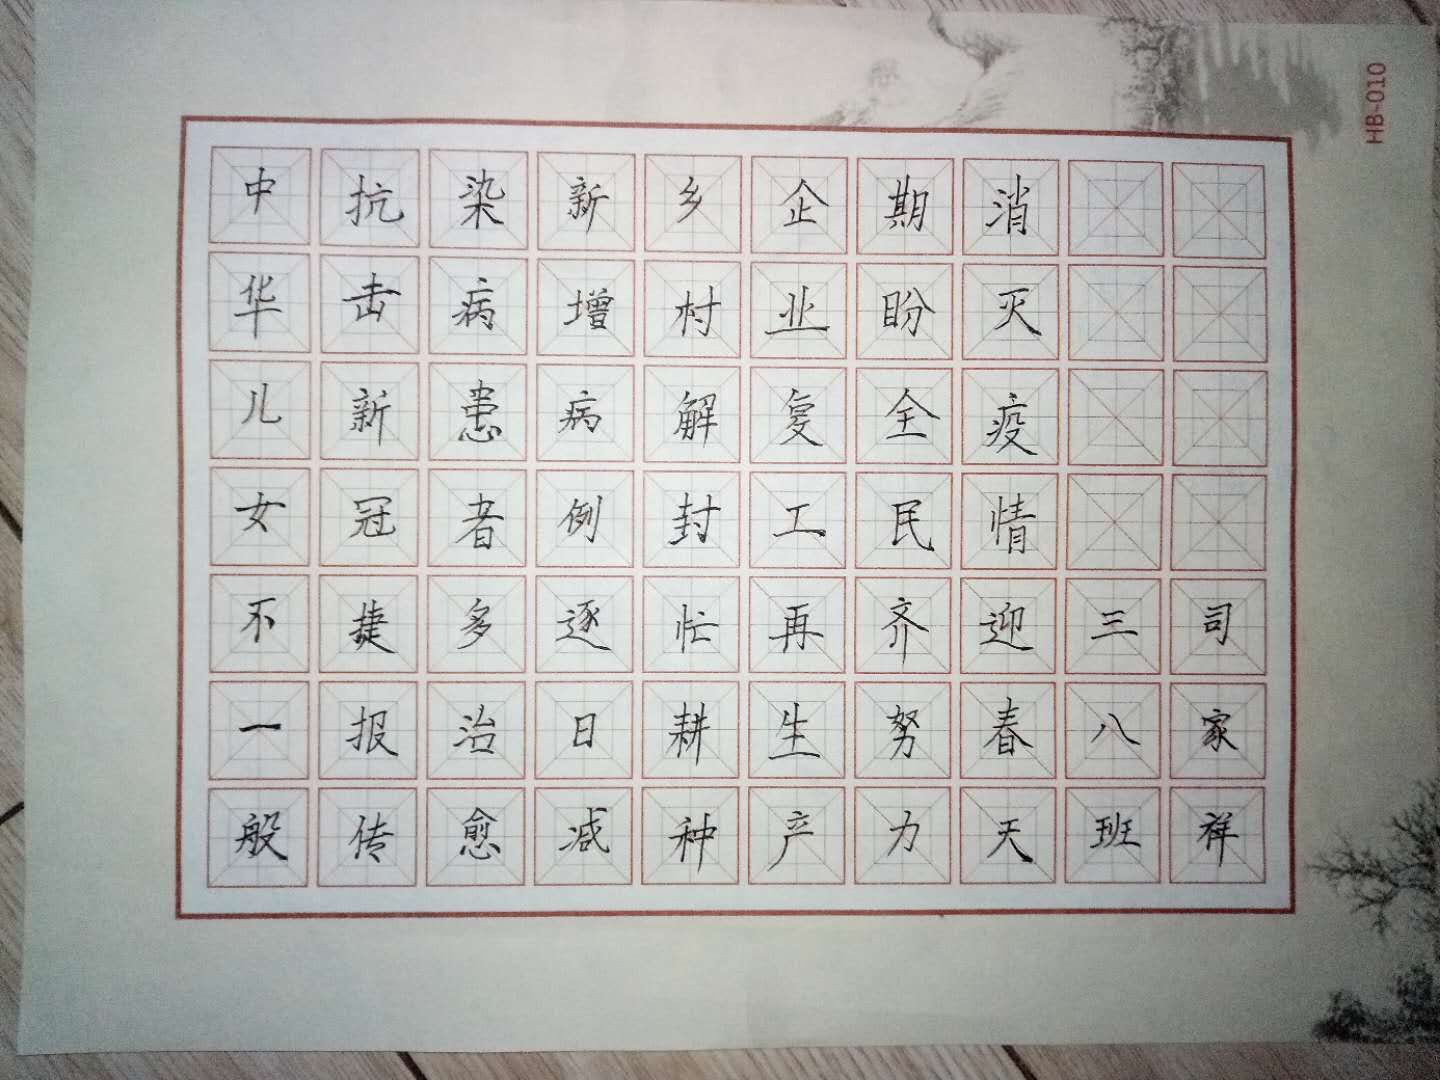 中华儿女不一般
抗击新冠捷报传
染病患者多治愈
新增病例逐日减
乡村解封忙耕种
企业复工再生产
期盼全民齐努力
消灭疫情迎春天
三八班
司家祥
HB-010